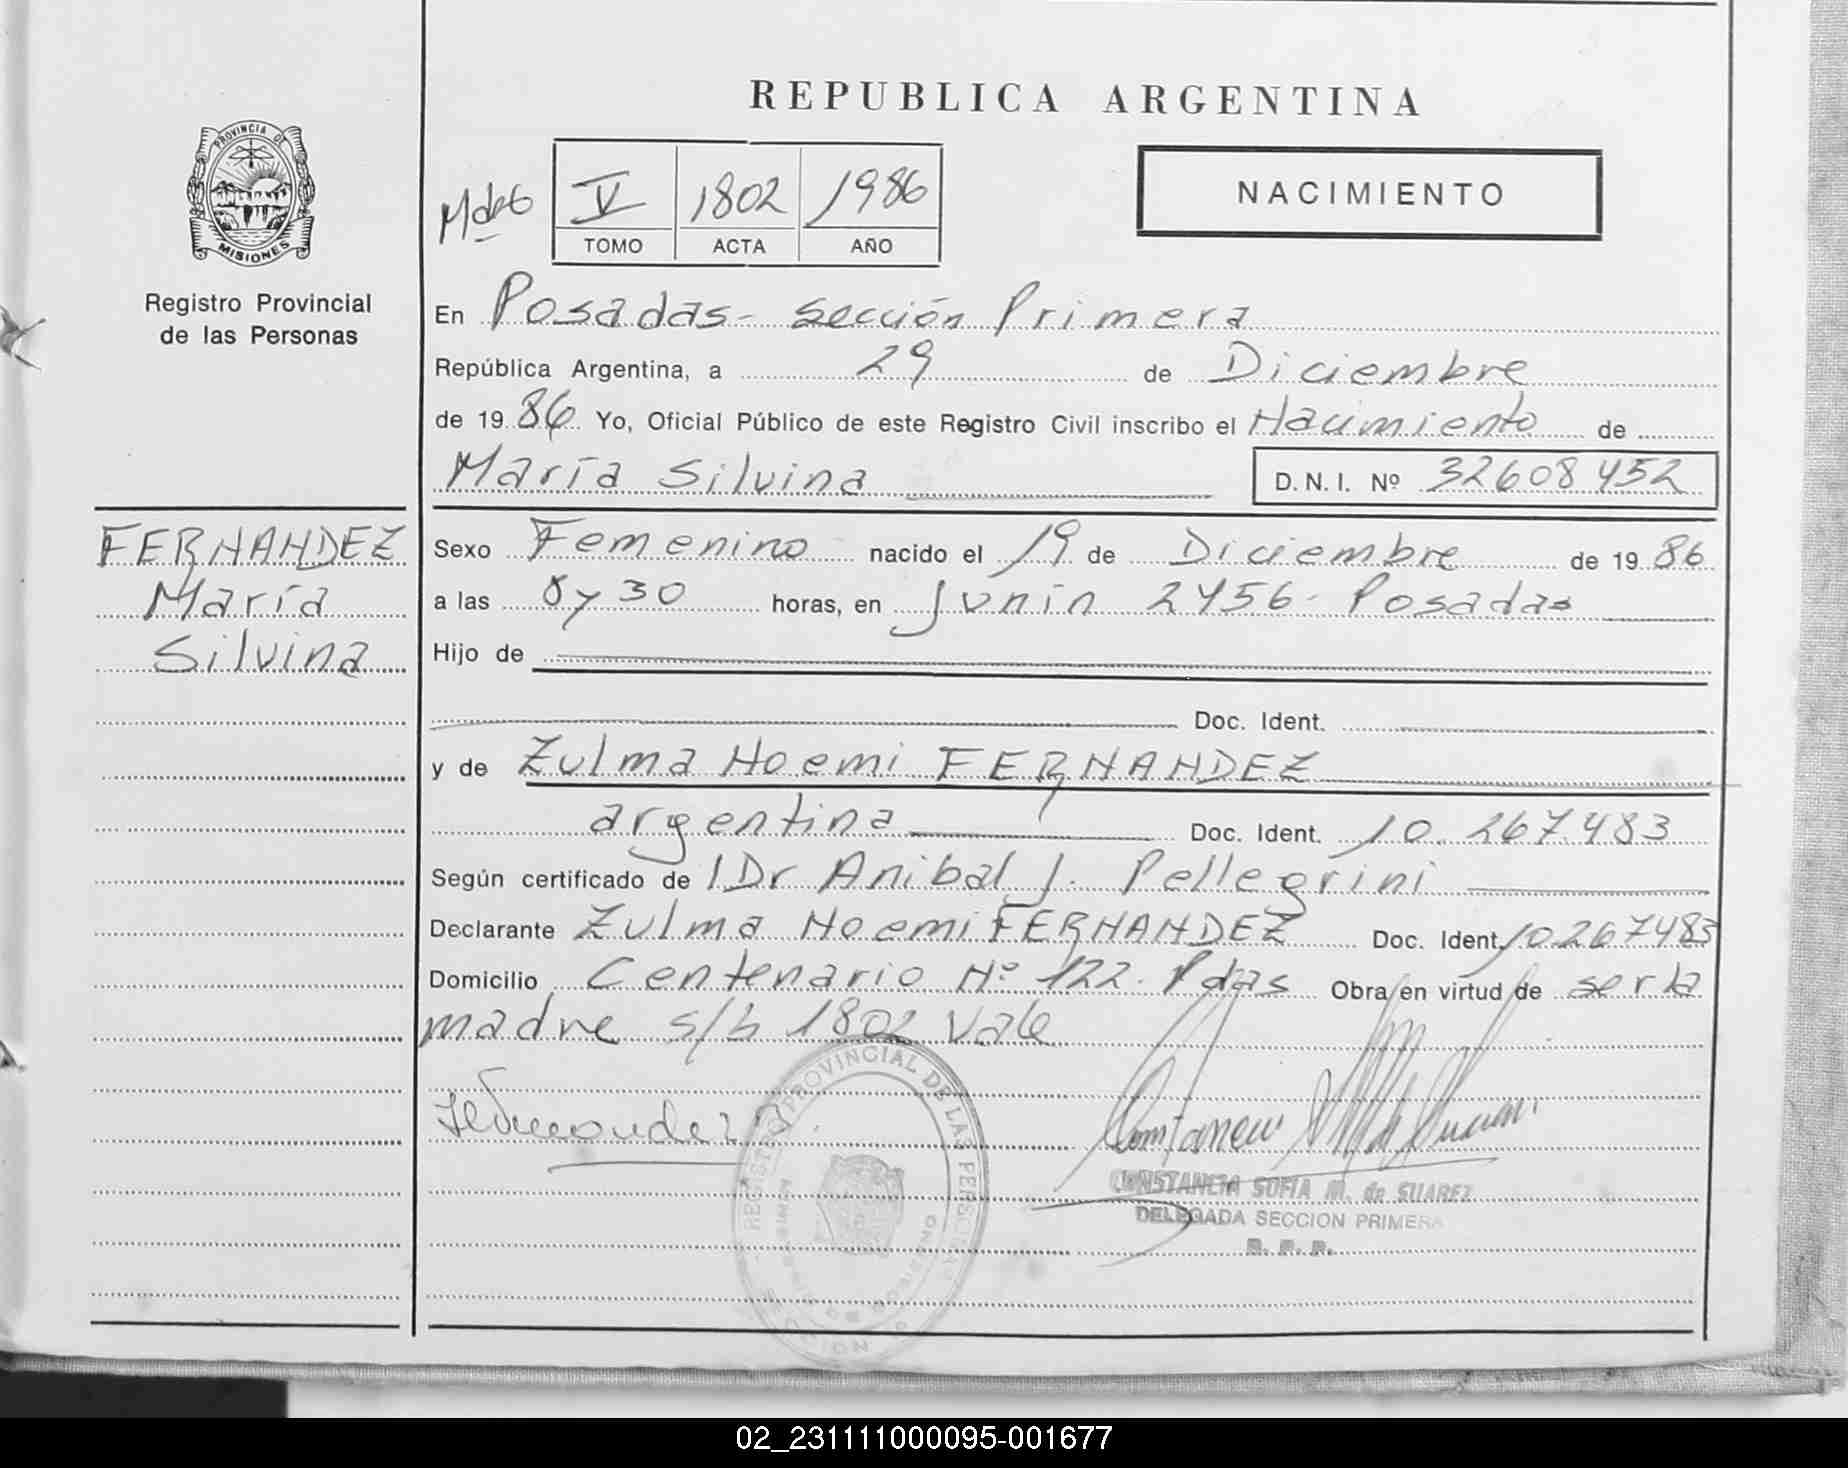 REPUBLICA ARGENTINA
PROVINCIA DE
MISIONES
Registro Provincial
de las Personas
V 1802 1986
TOMO ACTA AÑO
NACIMIENTO
En Posadas - sección Primera
República Argentina, a 29 de Diciembre
de 1986 Yo, Oficial Público de este Registro Civil inscribo el Nacimiento de
María Silvina D.N.I. Nº 32608452
FERNANDEZ
María
Silvina
Sexo Femenino nacido el 19 de Diciembre de 1986
a las 8 y 30 horas, en Junín 2456 - Posadas
Hijo de
Doc. Ident.
y de Zulma Noemi FERNANDEZ
argentina Doc. Ident. 10.267.483
Según certificado de Dr Anibal J. Pellegrini
Declarante Zulma Noemi FERNANDEZ Doc. Ident. 10267483
Domicilio Centenario Nº 122. Pdas Obra en virtud de ser la
madre s/b 1802 Vale
REGISTRO PROVINCIAL DE LAS PERSONAS
CONSTANCIA SOFIA M. de SUAREZ
DELEGADA SECCION PRIMERA
R. P. P.
02_231111000095-001677